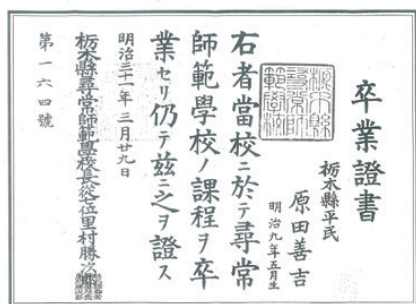 卒業證書
栃木縣平民
原田善吉
明治九年五月生
右者當校ニ於テ尋常
師範學校ノ課程ヲ卒
業セリ仍テ茲ニ之ヲ證ス
明治三十一年三月廿九日
栃木縣尋常師範學校長從七位里村勝次郎
第一六四號